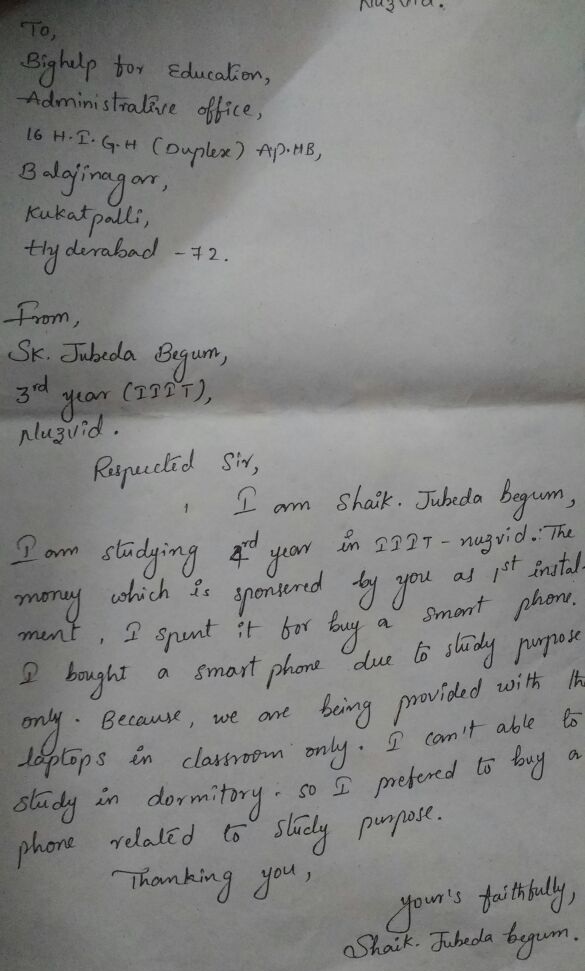 Nuzvid.
To,
Bighelp for Education,
Administrative office,
16 H.I.G.H (Duplex) AP.HB,
Balajinagar,
Kukatpalli,
Hyderabad - 72.
From,
SK. Jubeda Begum,
3rd year (IIIT),
Nuzvid.
Respected Sir,
I am Shaik. Jubeda begum,
I am studying 4rd year in IIIT - nuzvid. The
money which is sponsered by you as 1st instal-
ment, I spent it for buy a smart phone.
I bought a smart phone due to study purpose
only. Because, we are being provided with th
laptops in classroom only. I can't able to
study in dormitory. so I prefered to buy a
phone related to study purpose.
Thanking you,
your's faithfully,
Shaik. Jubeda begum.